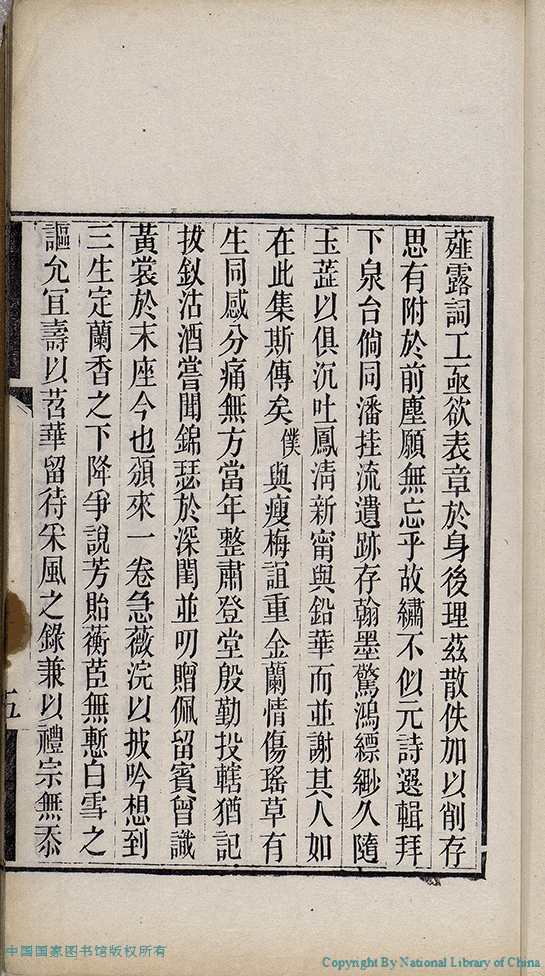 薤露詞工亟欲表章於身後理茲散佚加以削存
思有附於前塵願無忘乎故繡不似元詩選輯拜
下泉台倘同潘挂流遺跡存翰墨驚鴻縹緲久隨
玉蕋以俱沉吐鳳淸新甯與鉛華而並謝其人如
在此集斯傳矣僕與瘦梅誼重金蘭情傷瑤草有
生同感分痛無方當年整肅登堂殷勤投轄猶記
拔釵沽酒嘗聞錦瑟於深閨並叨贈佩留賓曾識
黃裳於末座今也頒來一卷急薇浣以披吟想到
三生定蘭香之下降爭說芳貽蘅茝無慙白雪之
謳允宜壽以苕華留待采風之錄兼以禮宗無忝
五
中国国家图书馆版权所有
Copyright By National Library of China